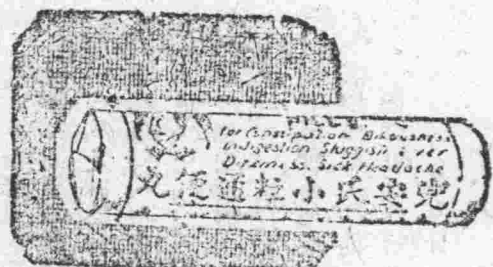 for Constipation Biliousness
Indigestion Sluggish Liver
Dizziness. Sick Headache
兜安氏小粒通便丸